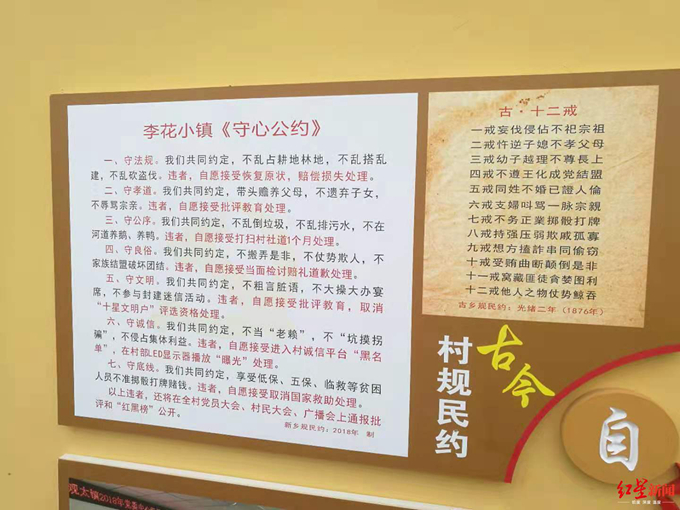 李花小镇《守心公约》
一、守法规。我们共同约定，不乱占耕地林地，不乱搭乱
建，不乱砍盗伐。违者，自愿接受恢复原状，赔偿损失处理。
二、守孝道。我们共同约定，带头赡养父母，不遗弃子女，
不辱骂宗亲。违者，自愿接受批评教育处理。
三、守公序。我们共同约定，不乱倒垃圾，不乱排污水，不在
河道养鹅、养鸭。违者，自愿接受打扫村社道1个月处理。
四、守良俗。我们共同约定，不搬弄是非，不仗势欺人，不
家族结盟破坏团结。违者，自愿接受当面检讨赔礼道歉处理。
五、守文明。我们共同约定，不粗言脏语，不大操大办宴
席，不参与封建迷信活动。违者，自愿接受批评教育，取消
“十星文明户”评选资格处理。
六、守诚信。我们共同约定，不当“老赖”，不“坑摸拐
骗”，不侵占集体利益。违者，自愿接受进入村诚信平台“黑名
单”，在村部LED显示器播放“曝光”处理。
七、守底线。我们共同约定，享受低保、五保、临救等贫困
人员不准掷骰打牌赌钱。违者，自愿接受取消国家救助处理。
以上违者，还将在全村党员大会、村民大会、广播会上通报批
评和“红黑榜”公开。
新乡规民约：2018年 制
古·十二戒
一戒妄伐侵佔不祀宗祖
二戒忤逆子媳不孝父母
三戒幼子越理不尊長上
四戒不遵王化成党結盟
五戒同姓不婚已證人倫
六戒支婦叫骂一脉宗親
七戒不务正業掷骰打牌
八戒持强压弱欺戚孤寡
九戒想方搕詐串同偷窃
十戒受贿曲断颠倒是非
十一戒窝藏匪徒貪婪图利
十二戒他人之物仗势鲸吞
古乡规民约：光绪二年（1876年）
古今
村规民约
自
红星新闻